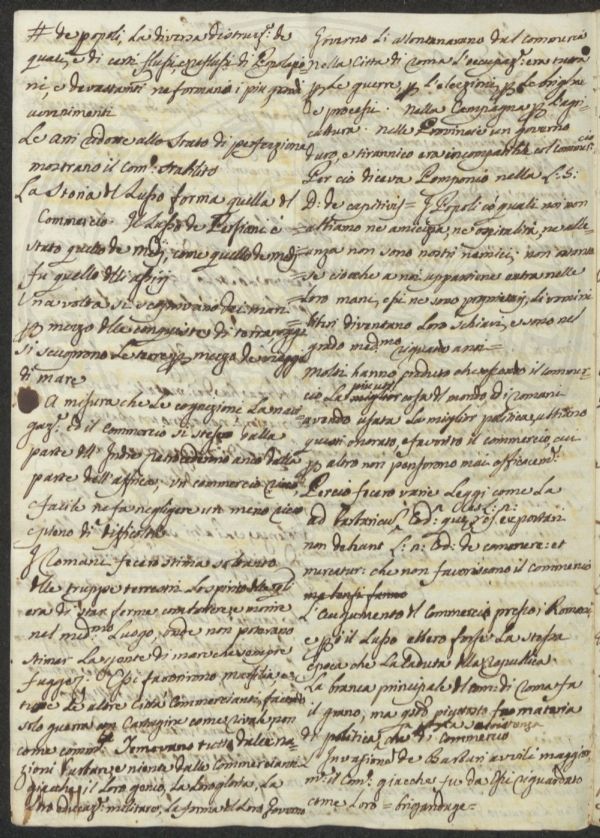 # de popoli, la diversa distruz.e de
quali, e di certi flussi, e riflussi di Popolazio=
ni, e devastanti ne formano i più grandi
avvenimenti
Le Arti ridotte allo Stato di perfezione
mostrano il Com.o stabilito
La Storia del Lusso forma quella del
Commercio Il Lusso de Persiani è
stato quello de Medj, come quello de Medj
fu quello degli Assirj
Una volta si scoprivano dei mari
per mezzo delle conquiste di terra, oggi
si scuoprono le terre per mezzo de viaggi
di mare
A misura che le cognizione la navi-
gaz.e ed il commercio si stese dalla
parte dell'Indie
parte dell'Affrica; un commercio ricco
e facile ne fa negligere un meno ricco
e pieno di difficoltà
I Romani fecero stima soltanto
delle truppe terrestri Lo spirito degli
era di star fermo combattere, e morire
nel med.mo Luogo, onde non potevano
stimar la gente di mare che sempre
fugge; Essi favorirono
le altre Città Commercianti, facendo
solo guerra con Cartagine come rivale non
come comm.te Temevano tutto dalle na=
zioni barbare, e niente dalle Commercianti
giacche il loro genio, la loro gloria, la
loro educaz.e militare, la forma del loro Governo
Governo li allontanavano dal commercio
nella Città di Roma l'occupaz.e era tutta
per le guerre, per l'elezioni, per le brighe
e processi. nella Campagna per l'agri=
cultura. nelle Provincie un governo
duro, e tirannico era incompatibile col commercio
Per ciò diceva Pomponio nella L: 5:
D: de captivis = I Popoli co quali noi non
abbiamo ne amicizia, ne ospitalità, ne alle=
anza non sono nostri nemici, non ostante
se ciocche a noi appartiene entra nelle
loro mani, essi ne sono proprietarj, gli uomini
liberi diventano loro schiavi, e sono nel
grado med.mo riguardo a noi =
molti hanno creduto che essendo il commer=
cio la più util cosa del mondo, ed i Romani
avendo usata la miglior politica, abbino
onorato, e favorito il commercio, cui
per altro non pensorono mai efficacem.e
Perciò fecero varie Leggi come la
ad barbaricum Cod. quae res exportari
non debeant L: n: Cod: de commerc: et
mercator: che non favoriscono il commercio
L'augumento del Commercio presso i Romani
e per il Lusso ebbero forse la stessa
epoca che la caduta della Repubblica
La branca principale del com: di Roma fu
il grano, ma però piuttosto fu materia
di politica che di commercio
Invasione de Barbari avvilì maggior
m.te il Com.o giacche fu da essi riguardato
come loro = brigandage =